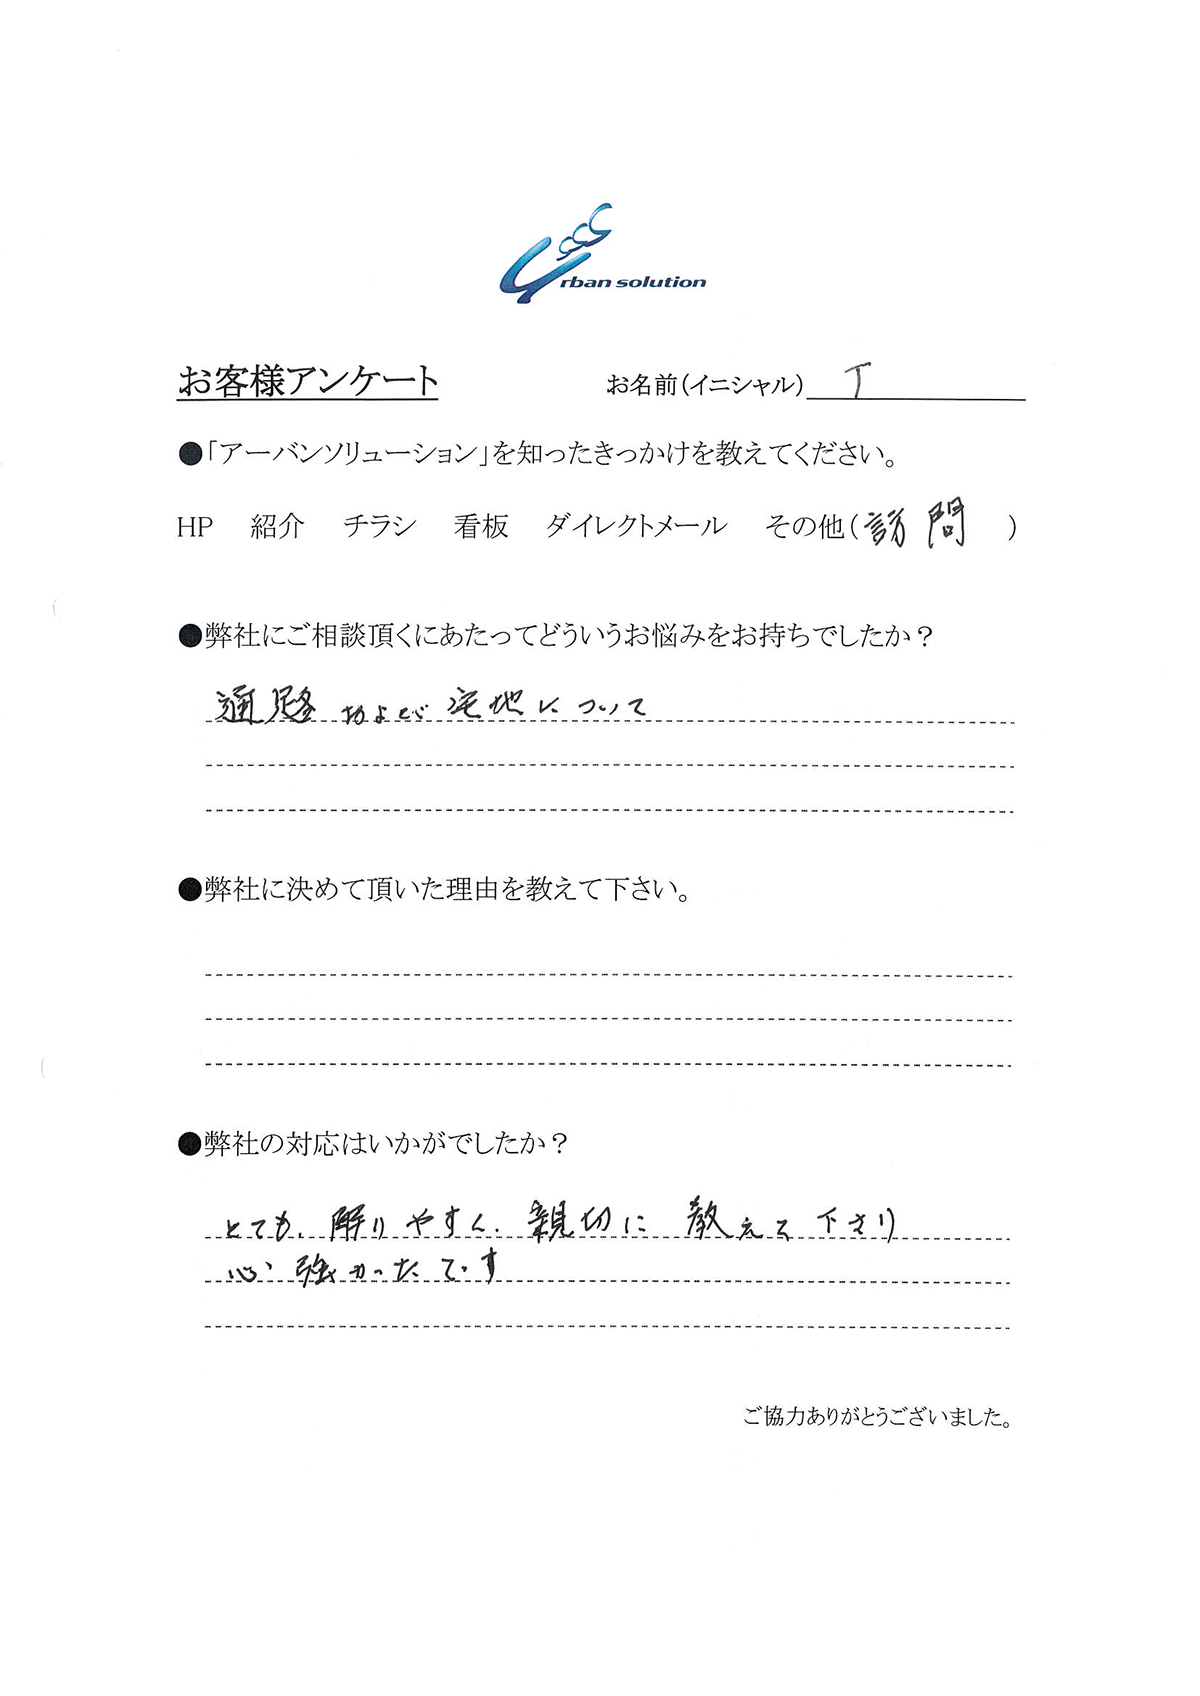 Urban solution
お客様アンケート お名前(イニシャル) T
●「アーバンソリューション」を知ったきっかけを教えてください。
HP 紹介 チラシ 看板 ダイレクトメール その他(訪問)
●弊社にご相談頂くにあたってどういうお悩みをお持ちでしたか？
通路および宅地について
●弊社に決めて頂いた理由を教えて下さい。
●弊社の対応はいかがでしたか？
とても、解りやすく、親切に教えて下さり
心強かったです
ご協力ありがとうございました。